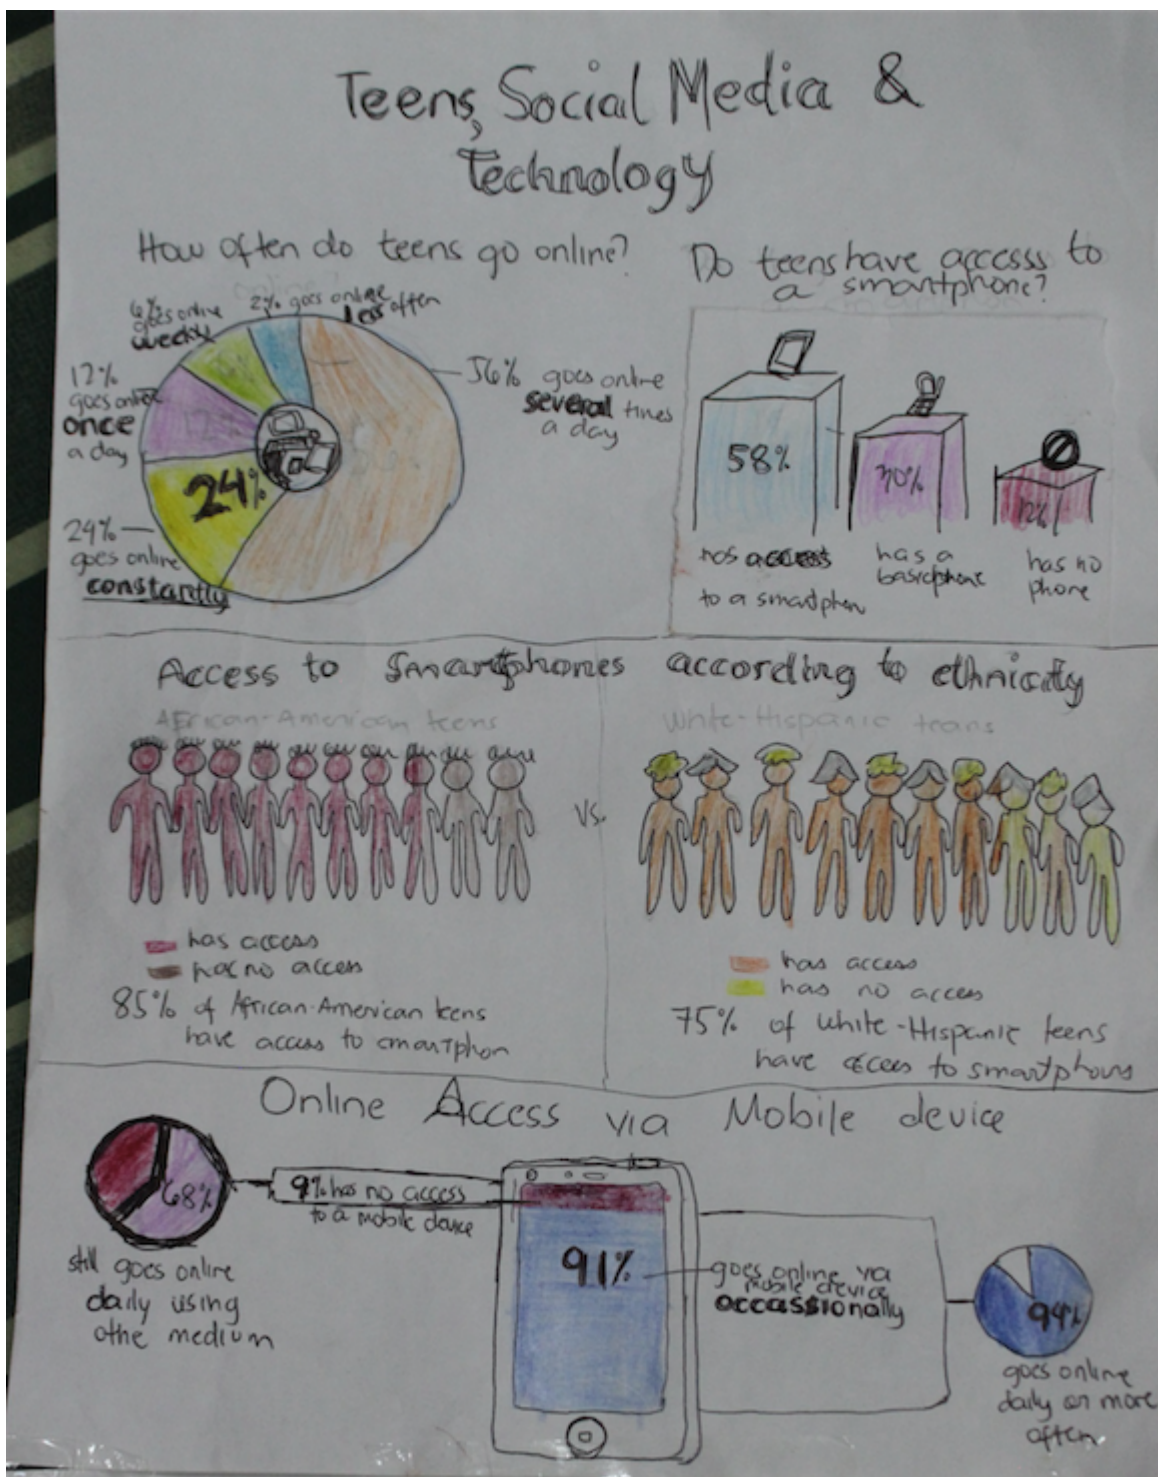 Teens, Social Media &
Technology
How often do teens go online?
6% goes online
weekly
2% goes online
less often
12%
goes online
once
a day
56% goes online
several times
a day
24%
24%
goes online
constantly
Do teens have accesss to
a smartphone?
58%
30%
12%
has access
to a smartphon
has a
basicphone
has no
phone
Access to smartphones according to ethnicity
African-American teens
White-Hispanic teans
vs.
has access
has no access
85% of African-American teens
have access to smartphon
has access
has no access
75% of white-Hispanic teens
have access to smartphons
Online Access via Mobile device
68%
still goes online
daily using
othe medium
9% has no access
to a mobile device
91%
goes online via
mobile device
occassionally
94%
goes online
daily or more
often